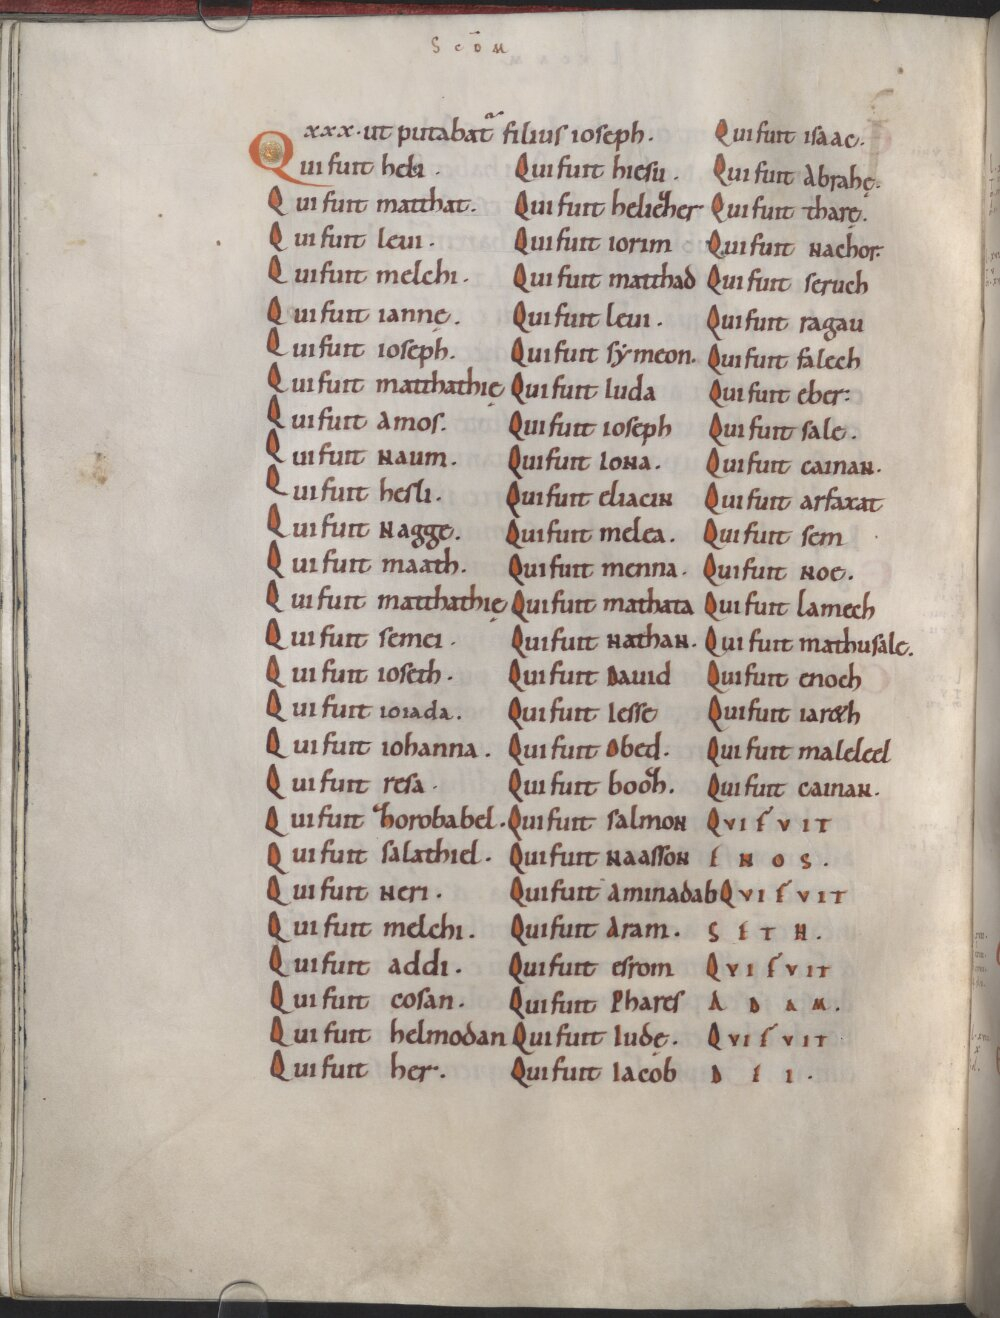 Scōm
xxx. ut putabat᷑ filius ioseph.
Qui fuit heli.
Qui fuit matthat.
Qui fuit leui.
Qui fuit melchi.
Qui fuit iannę.
Qui fuit ioseph.
Qui fuit matthathię
Qui fuit amos.
Qui fuit naum.
Qui fuit hesli.
Qui fuit nagge.
Qui fuit maath.
Qui fuit matthathię
Qui fuit semei.
Qui fuit ioseth.
Qui fuit ioiada.
Qui fuit iohanna.
Qui fuit resa.
Qui fuit thorobabel.
Qui fuit salathiel.
Qui fuit neri.
Qui fuit melchi.
Qui fuit addi.
Qui fuit cosan.
Qui fuit helmodan
Qui fuit her.
Qui fuit hiesu.
Qui fuit heliether
Qui fuit iorim
Qui fuit matthad
Qui fuit leui.
Qui fuit sẏmeon.
Qui fuit Iuda
Qui fuit ioseph
Qui fuit Iona.
Qui fuit eliacin
Qui fuit melea.
Qui fuit menna.
Qui fuit mathata
Qui fuit nathan.
Qui fuit David
Qui fuit Iesse
Qui fuit Obed.
Qui fuit booth.
Qui fuit salmon
Qui fuit naasson
Qui fuit aminadab
Qui fuit Aram.
Qui fuit esrom
Qui fuit Phares
Qui fuit Iudę.
Qui fuit Iacob
Qui fuit isaac.
Qui fuit Abrahę.
Qui fuit tharę.
Qui fuit nachor.
Qui fuit seruch
Qui fuit ragau
Qui fuit falech
Qui fuit eber:
Qui fuit sale.
Qui fuit cainan.
Qui fuit arfaxat
Qui fuit sem
Qui fuit noe.
Qui fuit lamech
Qui fuit mathusale.
Qui fuit enoch
Qui fuit iar&h
Qui fuit maleleel
Qui fuit cainan.
QVI FVIT
ENOS.
QVI FVIT
SETH.
QVI FVIT
ADAM.
QVI FVIT
DEI.